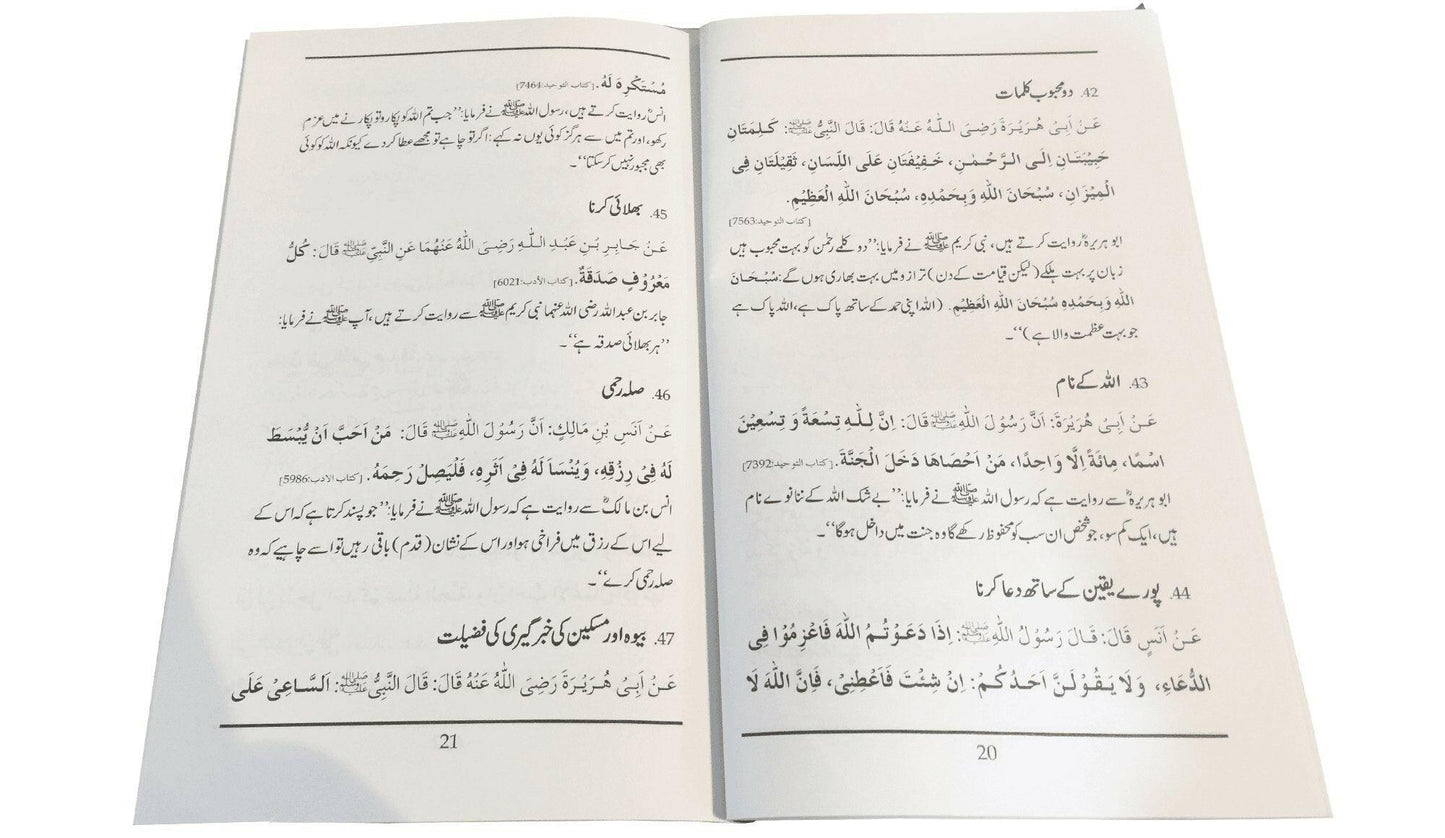 42. دو محبوب کلمات
عَنْ اَبِیْ هُرَيْرَةَ رَضِیَ اللّٰهُ عَنْهُ قَالَ: قَالَ النَّبِیُّ ﷺ: كَلِمَتَانِ
حَبِيْبَتَانِ اِلَی الرَّحْمٰنِ، خَفِيْفَتَانِ عَلَی اللِّسَانِ، ثَقِيْلَتَانِ فِی
الْمِيْزَانِ، سُبْحَانَ اللّٰهِ وَبِحَمْدِہٖ، سُبْحَانَ اللّٰهِ الْعَظِيْمِ.
[كتاب التوحيد:7563]
ابو ہریرہؓ روایت کرتے ہیں، نبی کریم ﷺ نے فرمایا:’’دو کلمے رحمٰن کو بہت محبوب ہیں
زبان پر بہت ہلکے (لیکن قیامت کے دن) ترازو میں بہت بھاری ہوں گے: سُبْحَانَ
اللّٰهِ وَبِحَمْدِہٖ سُبْحَانَ اللّٰهِ الْعَظِيْمِ. (اللہ اپنی حمد کے ساتھ پاک ہے، اللہ پاک ہے
جو بہت عظمت والا ہے)‘‘۔
43. اللہ کے نام
عَنْ اَبِیْ هُرَيْرَةَ: اَنَّ رَسُوْلَ اللّٰهِ ﷺ قَالَ: اِنَّ لِلّٰهِ تِسْعَةً وَ تِسْعِيْنَ
اسْمًا، مِائَةً اِلَّا وَاحِدًا، مَنْ اَحْصَاهَا دَخَلَ الْجَنَّةَ. [كتاب التوحيد:7392]
ابو ہریرہؓ سے روایت ہے کہ رسول اللہ ﷺ نے فرمایا:’’بے شک اللہ کے ننانوے نام
ہیں، ایک کم سو، جو شخص ان سب کو محفوظ رکھے گا وہ جنت میں داخل ہوگا‘‘۔
44. پورے یقین کے ساتھ دعا کرنا
عَنْ اَنَسٍ قَالَ: قَالَ رَسُوْلُ اللّٰهِ ﷺ: اِذَا دَعَوْتُمُ اللّٰهَ فَاعْزِمُوْا فِی
الدُّعَاءِ، وَلَا يَقُوْلَنَّ اَحَدُكُمْ: اِنْ شِئْتَ فَاَعْطِنِیْ، فَاِنَّ اللّٰهَ لَا
20
مُسْتَكْرِهَ لَهٗ. [كتاب التوحيد:7464]
انسؓ روایت کرتے ہیں، رسول اللہ ﷺ نے فرمایا:’’جب تم اللہ کو پکارو تو پکارنے میں عزم
رکھو، اور تم میں سے ہرگز کوئی یوں نہ کہے: اگر تو چاہے تو مجھے عطا کر دے کیونکہ اللہ کو کوئی
بھی مجبور نہیں کر سکتا‘‘۔
45. بھلائی کرنا
عَنْ جَابِرِ بْنِ عَبْدِ اللّٰهِ رَضِیَ اللّٰهُ عَنْهُمَا عَنِ النَّبِیِّ ﷺ قَالَ: كُلُّ
مَعْرُوْفٍ صَدَقَةٌ. [كتاب الأدب:6021]
جابر بن عبد اللہ رضی اللہ عنہما نبی کریم ﷺ سے روایت کرتے ہیں، آپ ﷺ نے فرمایا:
’’ہر بھلائی صدقہ ہے‘‘۔
46. صلہ رحمی
عَنْ اَنَسِ بْنِ مَالِكٍ: اَنَّ رَسُوْلَ اللّٰهِ ﷺ قَالَ: مَنْ اَحَبَّ اَنْ يُّبْسَطَ
لَهٗ فِیْ رِزْقِهٖ، وَيُنْسَاَ لَهٗ فِیْ اَثَرِهٖ، فَلْيَصِلْ رَحِمَهٗ. [كتاب الادب:5986]
انس بن مالکؓ سے روایت ہے کہ رسول اللہ ﷺ نے فرمایا:’’جو پسند کرتا ہے کہ اس کے
لیے اس کے رزق میں فراخی ہو اور اس کے نشان (قدم) باقی رہیں تو اسے چاہیے کہ وہ
صلہ رحمی کرے‘‘۔
47. بیوہ اور مسکین کی خبر گیری کی فضیلت
عَنْ اَبِیْ هُرَيْرَةَ رَضِیَ اللّٰهُ عَنْهُ قَالَ: قَالَ النَّبِیُّ ﷺ: اَلسَّاعِیْ عَلَی
21